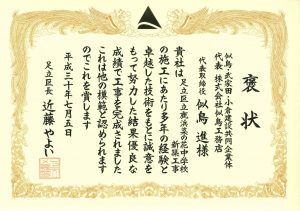 褒状
似鳥・武家田・小倉建設共同企業体
代表 株式会社似鳥工務店
代表取締役 似鳥 進 様
貴社は 足立区立鹿浜菜の花中学校新築工事
の施工にあたり多年の経験と
卓越した技術をもとに誠意を
もって努力した結果優良な
成績で工事を完成されました
これは他の模範と認められます
のでこれを賞します
平成三十年七月五日
足立区長 近藤 やよい